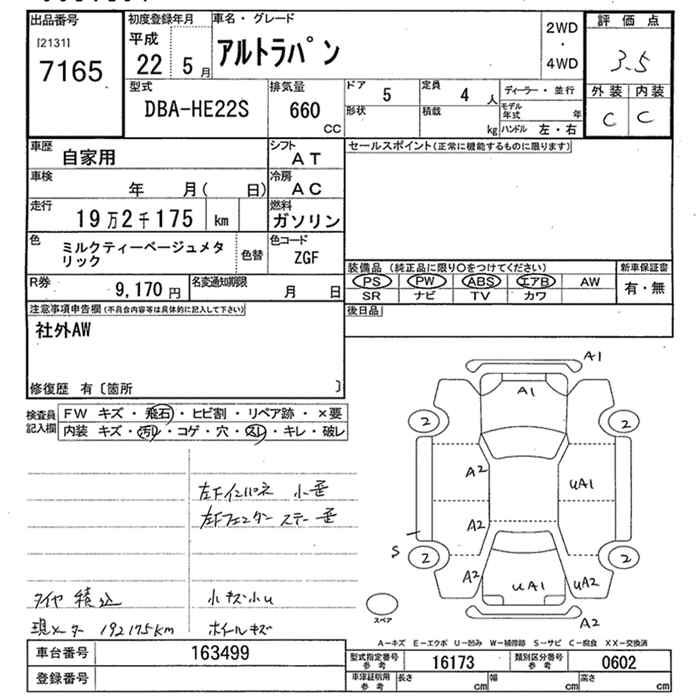 出品番号
[2131]
7165
初度登録年月
平成
22 5月
車名・グレード
アルトラパン
2WD
・
4WD
評価点
3.5
外装 内装
C C
型式
DBA-HE22S
排気量
660
CC
ドア 5
定員 4 人
形状
積載 kg
ディーラー・並行
モデル年式 年
ハンドル 左・右
車歴 自家用
シフト AT
車検 年 月( 日)
冷房 AC
走行 19万2千175 km
燃料 ガソリン
色 ミルクティーベージュメタリック
色替
色コード ZGF
R券 9,170円
名変通知期限 月 日
セールスポイント(正常に機能するものに限ります)
装備品(純正品に限り〇をつけてください)
PS PW ABS エアB AW
SR ナビ TV カワ
新車保証書
有・無
後日品
注意事項申告欄(不具合内容等は具体的に記入して下さい)
社外AW
修復歴 有〔箇所 〕
検査員記入欄
FW キズ・飛石・ヒビ割・リペア跡・×要
内装 キズ・汚レ・コゲ・穴・スレ・キレ・破レ
左FインパネW 小歪
左Fフェンダーステー歪
タイヤ 積込
小キズ小U
現メーター 192175km
ホイールキズ
A1
A1
2 2
A2 UA1
A2
S
2 2
A2 UA1 UA2
A2
スペア
A-キズ E-エクボ U-凹み W-補修跡 S-サビ C-腐食 XX-交換済
車台番号 163499
登録番号
型式指定番号参考 16173
類別区分番号参考 0602
車検証記載用参考 長さ cm 幅 cm 高さ cm